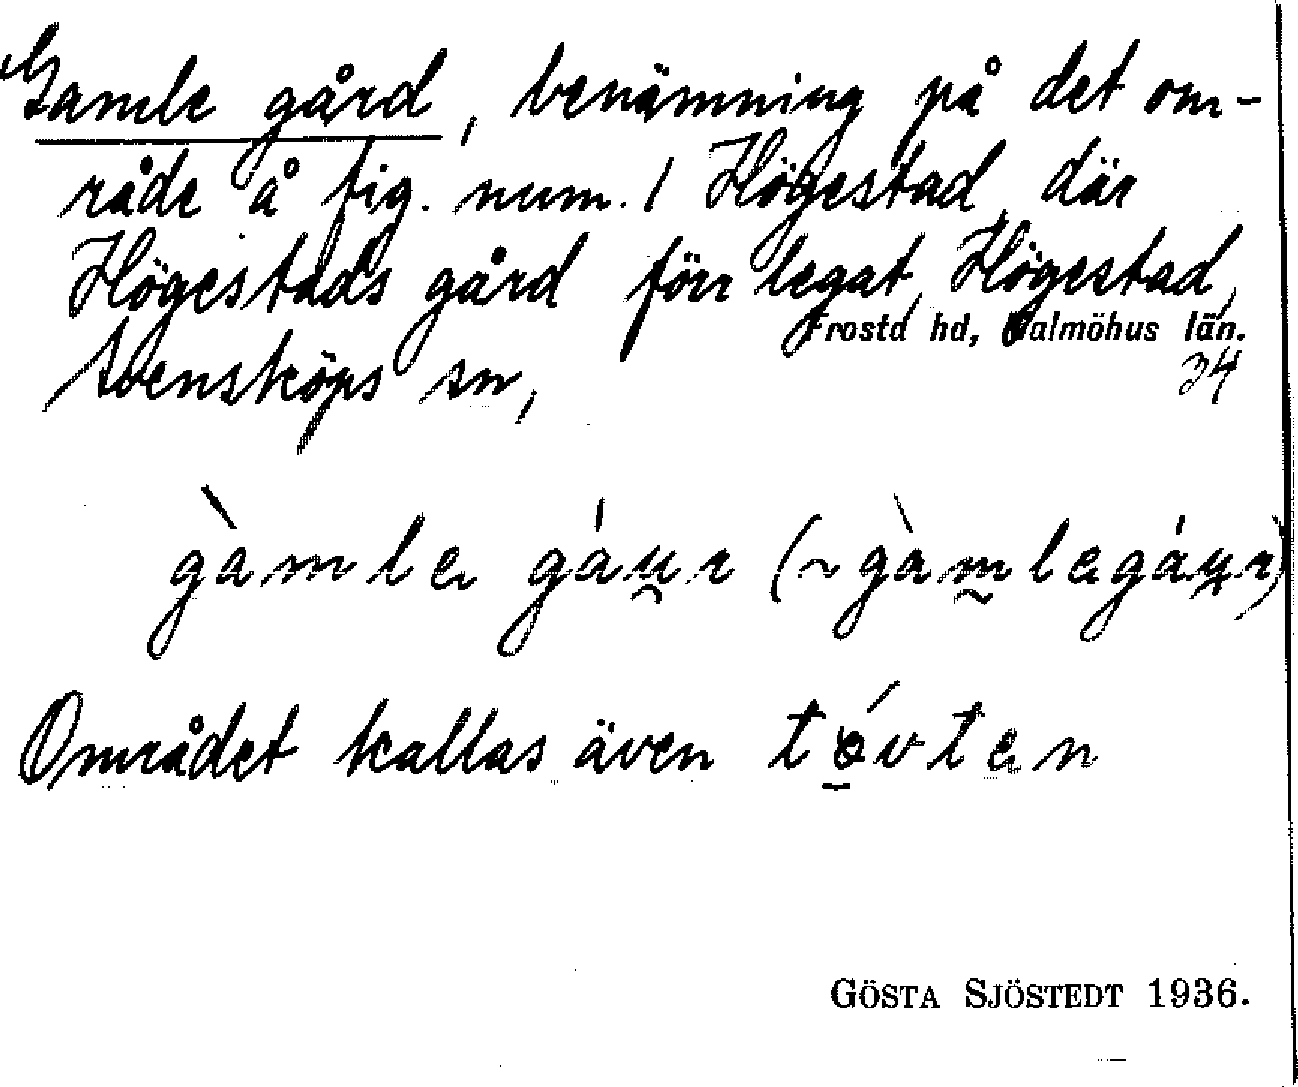 Gamle gård, benämning på det om-
råde å fig. num. 1 Högestad, där
Högestads gård förr legat, Högestad,
Frosta hd, Malmöhus län.
Svensköps sn,
34
gàmle gáu̯r (~gàm̰legáu̯r)
Området kallas även tó̱vten
GÖSTA SJÖSTEDT 1936.